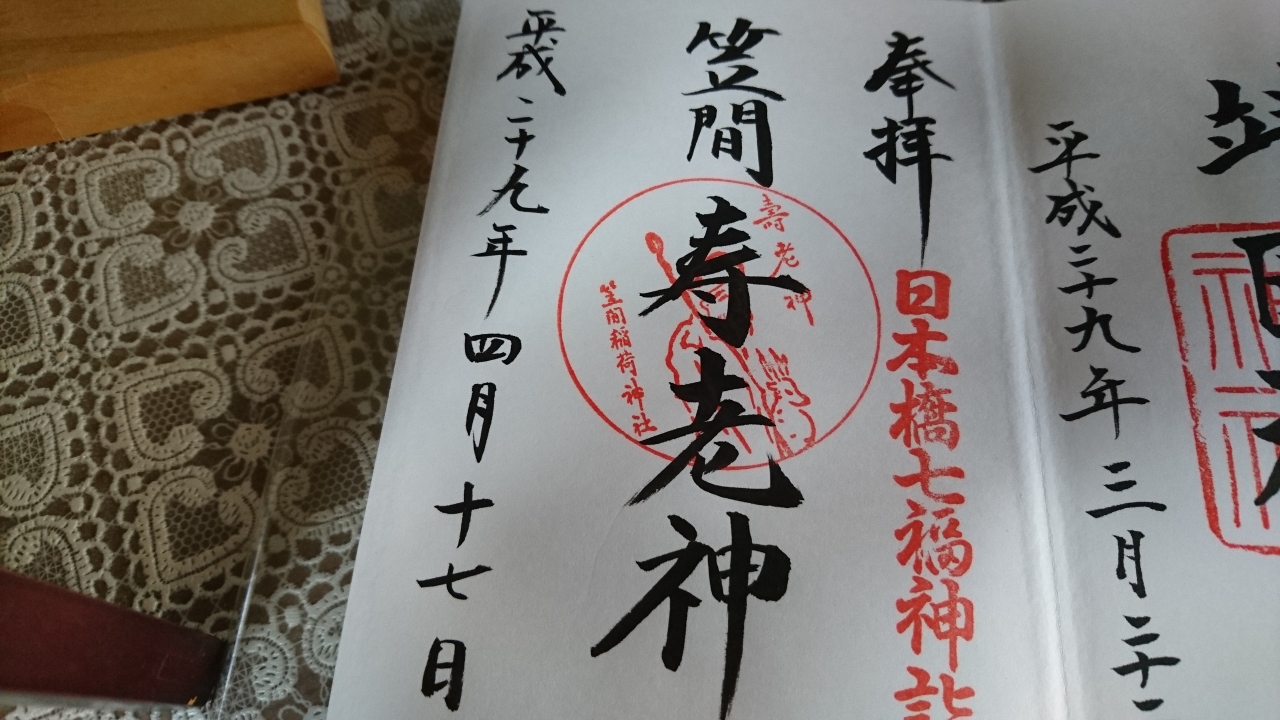 平成二十九年三月二十一
奉拝
日本橋七福神詣
笠間寿老神
壽老神
笠間稲荷神社
平成二十九年四月十七日